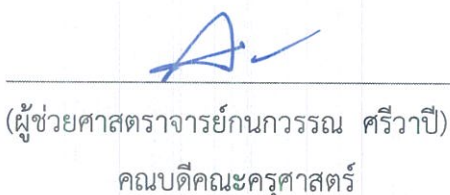 (ผู้ช่วยศาสตราจารย์กนกวรรณ ศรีวาปี)
คณบดีคณะครุศาสตร์